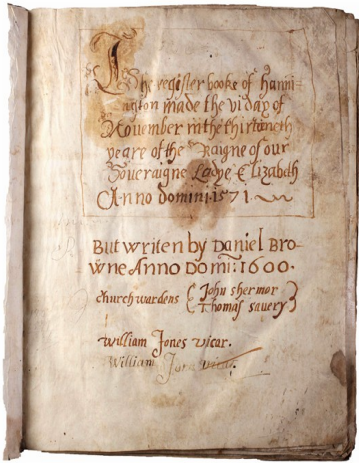 The register booke of Hanni=
ngton made the vi day of
November in the thirteneth
yeare of the Raigne of our
Soveraigne Ladye Elizabeth
Anno domini 1571.
But writen by Daniel Bro=
wne Anno Domi: 1600.
churchwardens { John shermor
Thomas savery }
william Jones vicar.
William Jones vicar.